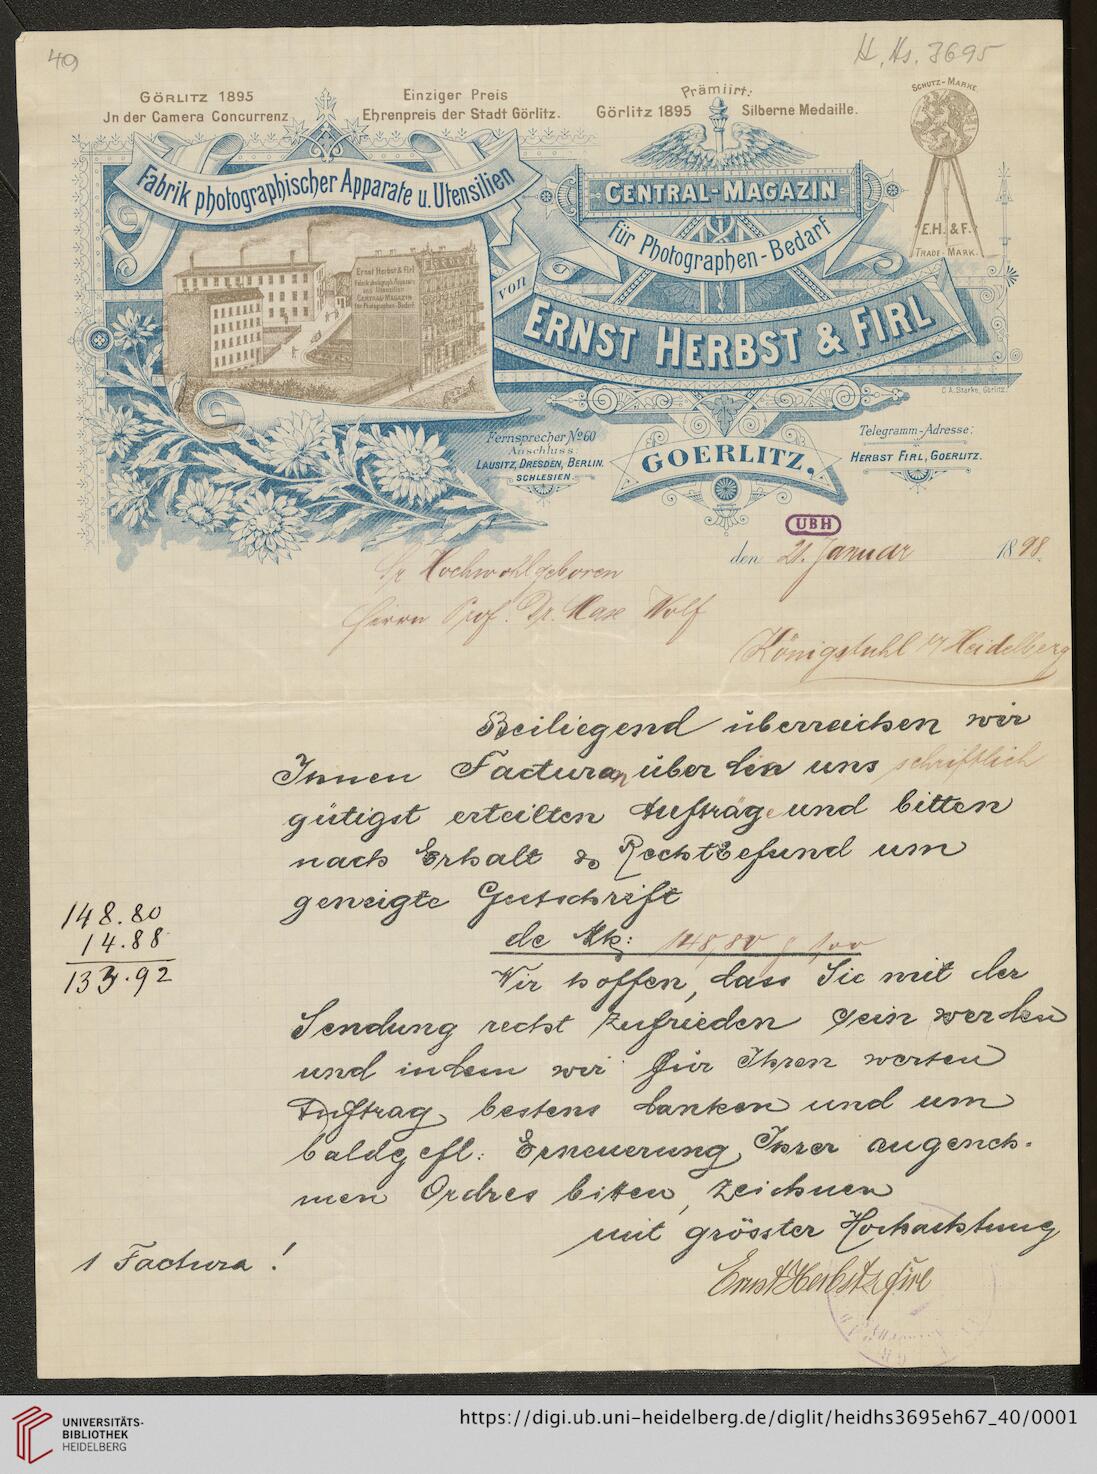 49
H. Hs. 3695
GÖRLITZ 1895
Jn der Camera Concurrenz
Einziger Preis
Ehrenpreis der Stadt Görlitz.
Prämiirt:
Görlitz 1895 Silberne Medaille.
SCHUTZ-MARKE.
E.H. & F.
TRADE-MARK.
Fabrik photographischer Apparate u. Utensilien
CENTRAL-MAGAZIN
für Photographen-Bedarf
Ernst Herbst & Firl
CENTRAL-MAGAZIN
für Photographen-Bedarf
von
ERNST HERBST & FIRL
C.A. Starke, Görlitz.
Fernsprecher No 60
Anschluss:
LAUSITZ, DRESDEN, BERLIN.
SCHLESIEN.
GOERLITZ,
Telegramm-Adresse:
HERBST FIRL, GOERLITZ.
UBH
den 21. Januar 1898.
Sr Hochwohlgeboren
Herrn Prof. Dr. Max Wolf
Königstuhl b/ Heidelberg
Beiliegend überreichen wir
Ihnen Facturan über den uns schriftlich
gütigst erteilten Aufträge und bitten
nach Erhalt & Rechtbefund um
geneigte Gutschrift
de Mk: 148,80
148.80
14.88
133.92
Wir hoffen, dass Sie mit der
Sendung recht zufrieden sein werden
und indem wir für Ihren werten
Auftrag bestens danken und um
baldgefl: Erneuerung Ihrer angeneh-
men Ordres bitten, zeichnen
mit grösster Hochachtung
1 Factura!
Ernst Herbst & Firl
UNIVERSITÄTS-
BIBLIOTHEK
HEIDELBERG
https://digi.ub.uni-heidelberg.de/diglit/heidhs3695eh67_40/0001